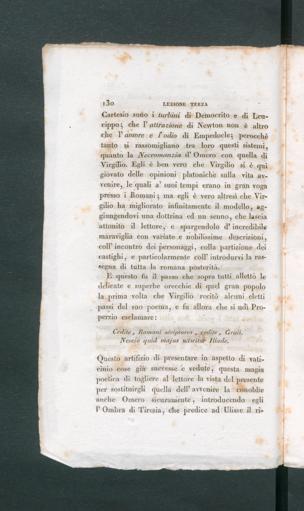 130 LEZIONE TERZA
Cartesio sono i turbini di Democrito e di Leu-
cippo; che l'attrazione di Newton non è altro
che l'amore e l'odio di Empedocle; perocchè
tanto si rassomigliano tra loro questi sistemi,
quanto la Necromanzia d'Omero con quella di
Virgilio. Egli è ben vero che Virgilio si è quì
giovato delle opinioni platoniche sulla vita av-
venire, le quali a' suoi tempi erano in gran voga
presso i Romani; ma egli è vero altresì che Vir-
gilio ha migliorato infinitamente il modello, ag-
giungendovi una dottrina ed un senno, che lascia
attonito il lettore, e spargendolo d'incredibile
maraviglia con variate e nobilissime descrizioni,
coll'incontro dei personaggi, colla partizione dei
castighi, e particolarmente coll'introdurvi la ras-
segna di tutta la romana posterità.
E questo fu il passo che sopra tutti allettò le
delicate e superbe orecchie di quel gran popolo
la prima volta che Virgilio recitò alcuni eletti
passi del suo poema, e fu allora che si udì Pro-
perzio esclamare:
Cedite, Romani scriptores, cedite, Graii.
Nescio quid majus nascitur Iliade.
Questo artifizio di presentare in aspetto di vati-
cinio cose già successe e vedute, questa magia
poetica di togliere al lettore la vista del presente
per sostituirgli quella dell'avvenire la conobbe
anche Omero sicuramente, introducendo egli
l'Ombra di Tiresia, che predice ad Ulisse il ri-